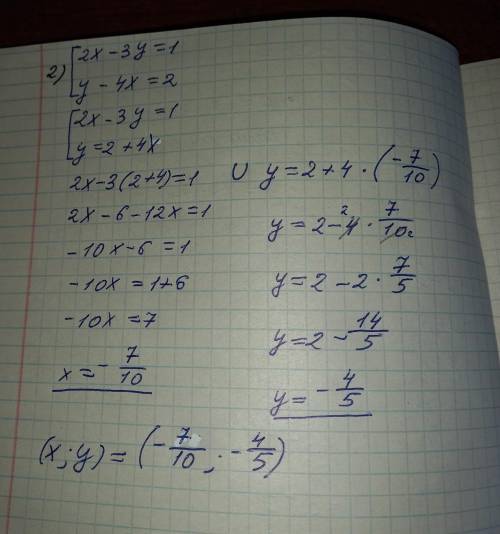 2) [2x - 3y = 1
y - 4x = 2
[2x - 3y = 1
y = 2 + 4x
2x - 3(2+4)=1
2x - 6 - 12x = 1
-10x - 6 = 1
-10x = 1+6
-10x = 7
x = - 7/10
U y = 2 + 4 · (- 7/10)
y = 2 - 4 2 · 7/10 5
y = 2 - 2 · 7/5
y = 2 - 14/5
y = - 4/5
(x;y) = (- 7/10 ; - 4/5)